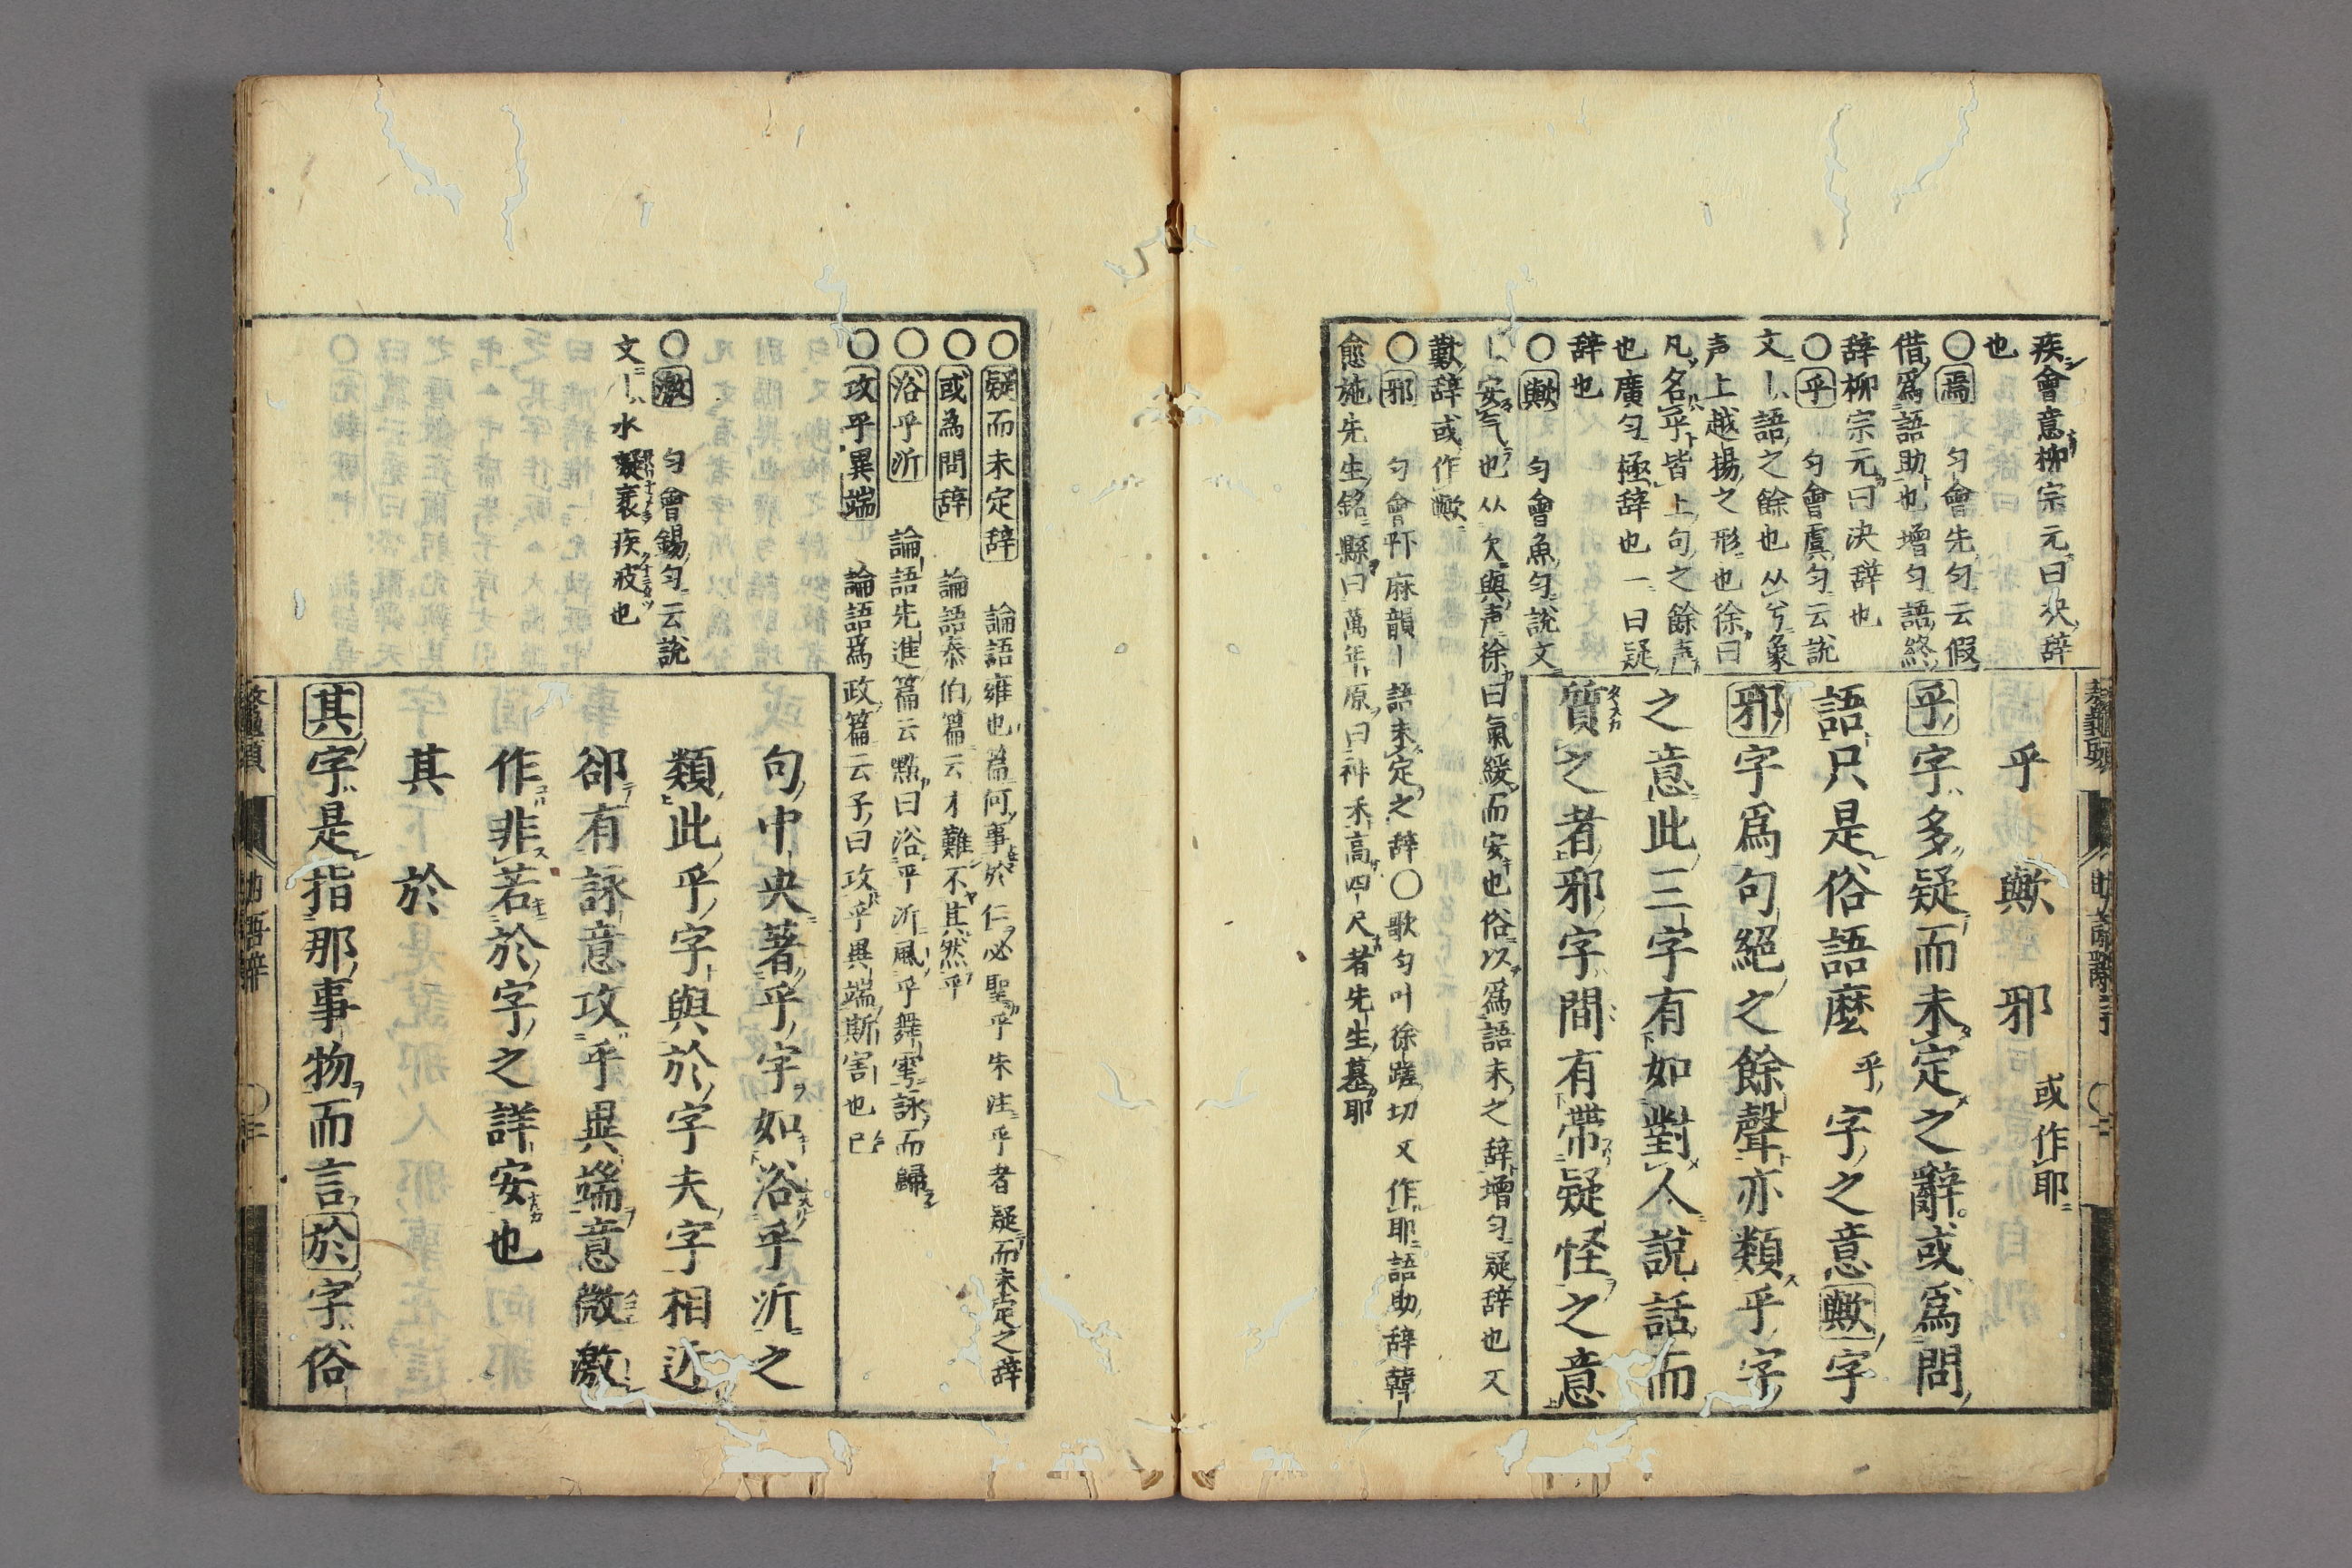 疾會意柳宗元曰决辞
也
○焉 匀會先匀云假
借爲語助也增匀語終
辞柳宗元曰决辞也
○乎 匀會虞匀云說
文丨語之餘也从兮象
声上越揚之形也徐曰
凡名乎皆上句之餘声
也廣匀極辞也一曰疑
辞也
○歟 匀會魚匀說文
丨安气也从欠與声徐曰氣緩而安也俗以爲語末之辞增匀疑辞也又
歎辞或作歟
○邪 匀會麻韻丨語末定之辞○歌匀叶徐蹉切又作耶語助辞韓
愈施先生銘縣曰萬年原曰神禾高四尺者先生墓耶
乎 歟 邪 或作耶
乎字多疑而未定之辭或爲問
語只是俗語麼乎字之意歟字
邪字爲句絕之餘聲亦類乎字
之意此三字有如對人說話而
質之者邪字間有帶疑怪之意
鼇頭 助語辭 ○二
○疑而未定辞 論語雍也篇何事於仁必聖乎朱注乎者疑而未定之辞
○或為問辞 論語泰伯篇云才難不其然乎
○浴乎沂 論語先進篇云點曰浴乎沂風乎舞雩詠而歸
○攻乎異端 論語爲政篇云子曰攻乎異端斯害也已
○激 匀會錫匀云說
文丨水礙衺疾波也
句中央著乎字如浴乎沂之
類此乎字與於字夫字相近
卻有詠意攻乎異端意微激
作非若於字之詳安也
其 於
其字是指那事物而言於字俗
鼇頭 助語辭 ○三